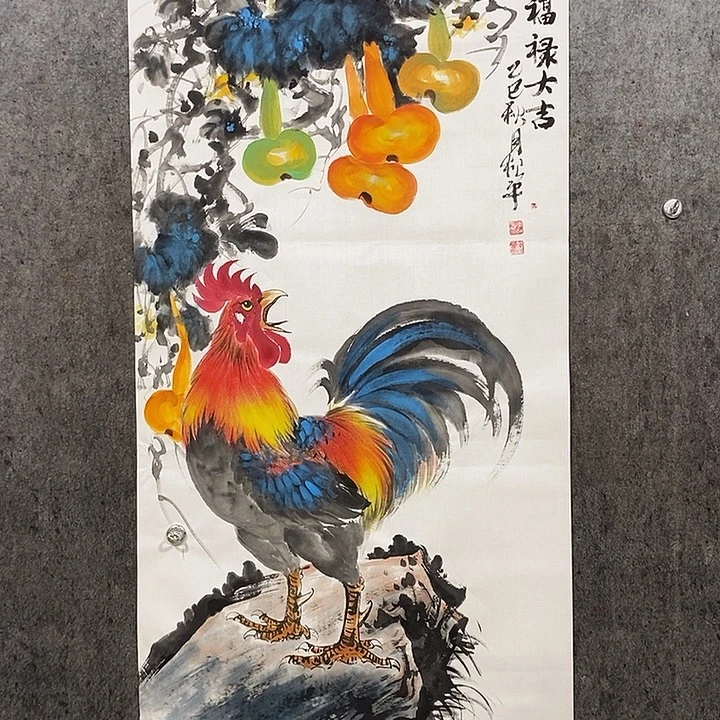 福禄大吉
乙巳秋月松平